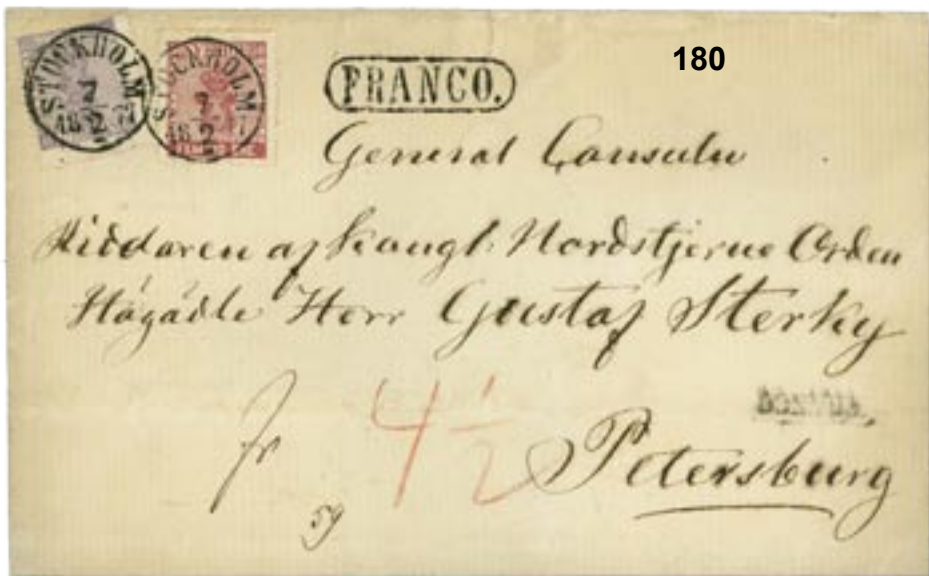 180
STOCKHOLM
7
2
STOCKHOLM
7
2
FRANCO.
General Consuln
Riddaren af Kongl. Nordstjerne Orden
Högädle Herr Gustaf Sterky
fr 4 1/2
Petersburg
59